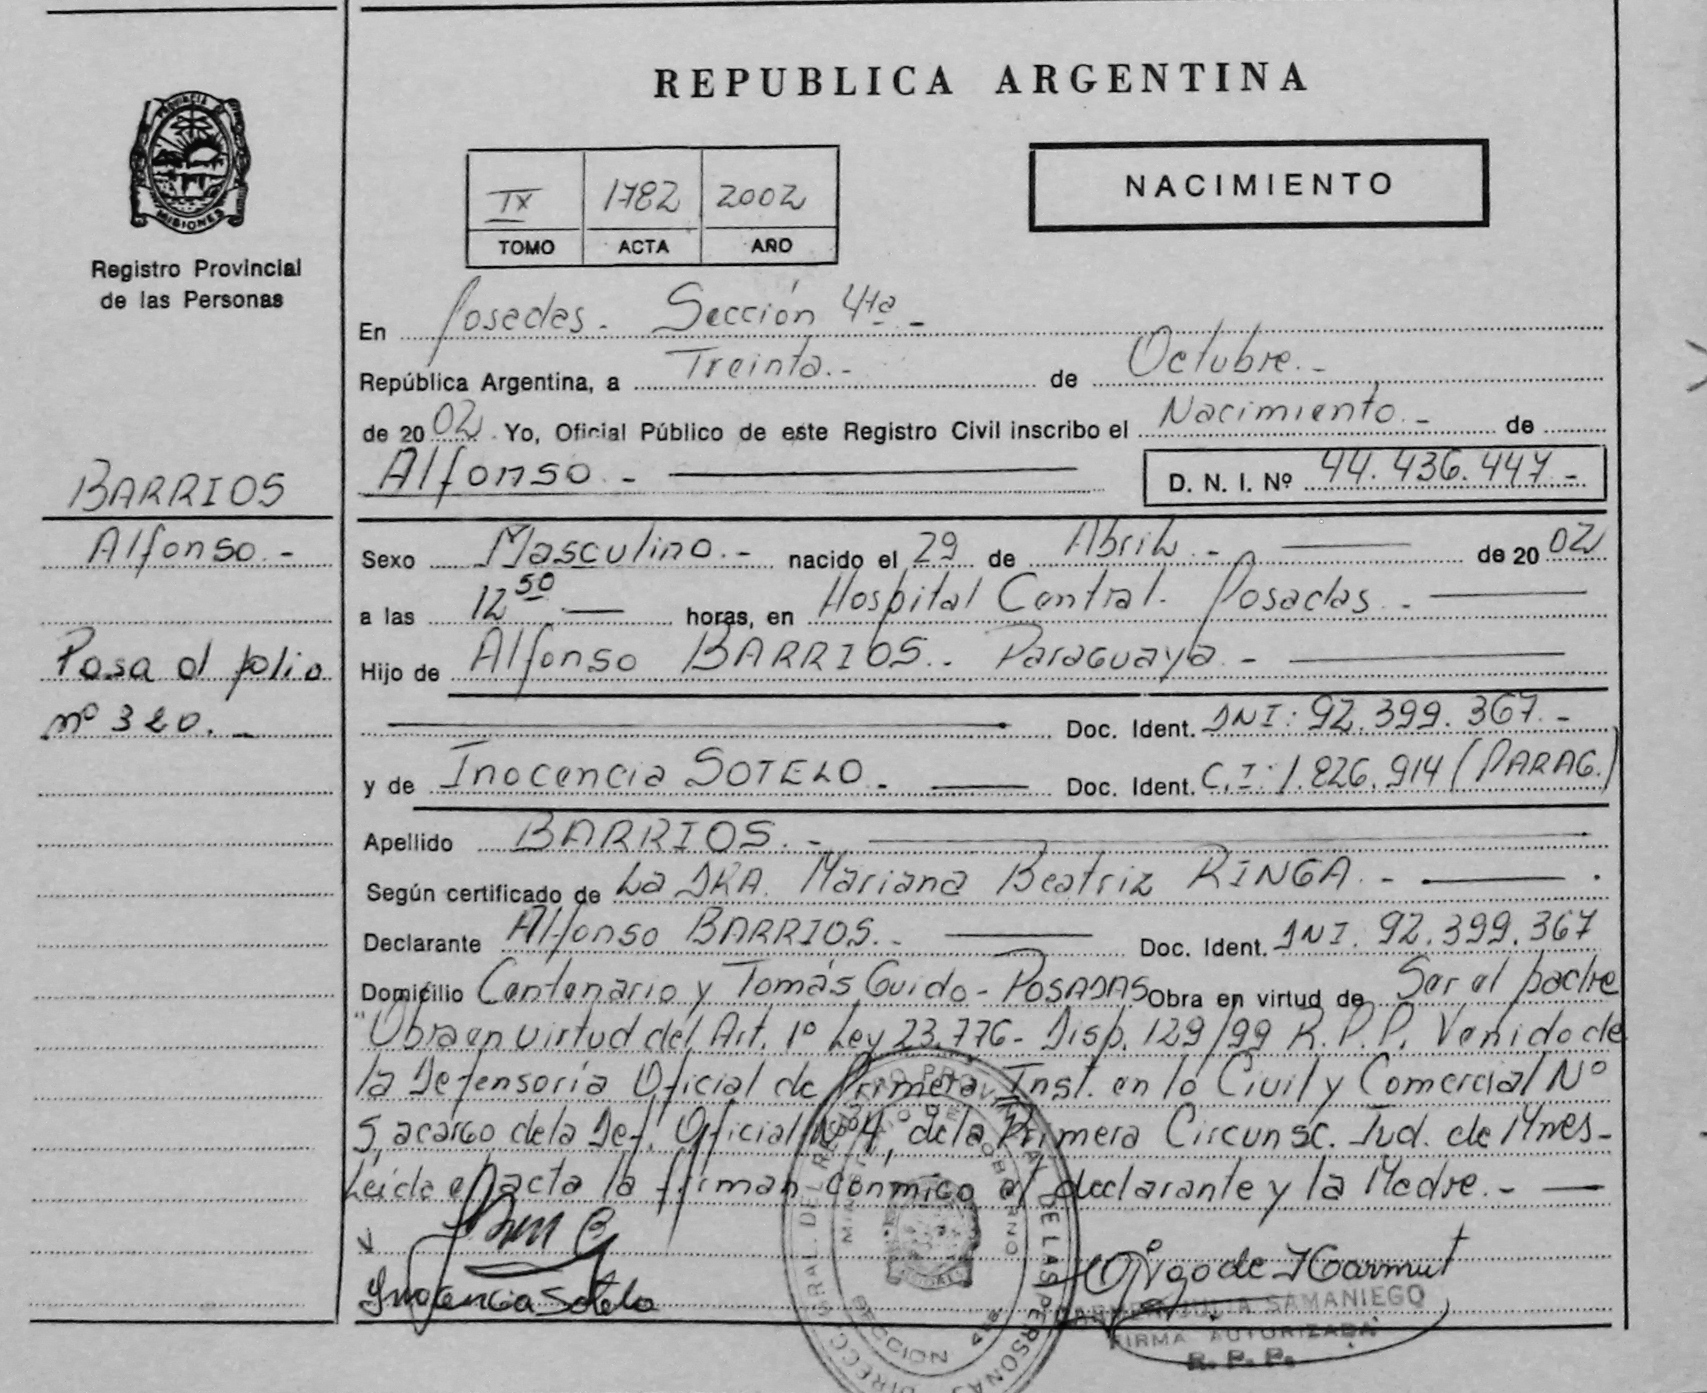 REPUBLICA ARGENTINA
PROVINCIA DE
MISIONES
Registro Provincial
de las Personas
IX 1782 2002
TOMO ACTA AÑO
NACIMIENTO
En Posadas. Sección 4ta -
República Argentina, a Treinta.- de Octubre.-
de 2002. Yo, Oficial Público de este Registro Civil inscribo el Nacimiento.- de
Alfonso.- D. N. I. Nº 44.436.447-
BARRIOS
Alfonso.-
Pasa al folio
nº 320.-
Sexo Masculino.- nacido el 29 de Abril.- de 2002
a las 12 50 horas, en Hospital Central. Posadas.-
Hijo de Alfonso BARRIOS.. Paraguaya.-
Doc. Ident. DNI: 92.399.367.-
y de Inocencia SOTELO.- Doc. Ident. C.I: 1.826.914 (PARAG.)
Apellido BARRIOS.-
Según certificado de La DRA. Mariana Beatriz RINGA.-
Declarante Alfonso BARRIOS.. Doc. Ident. DNI. 92.399.367
Domicilio Centenario y Tomás Guido - POSADAS Obra en virtud de Ser el padre
"Obra en virtud del Art. 1º Ley 23.776- Disp. 129/99 R.P.P. Venido de
la Defensoría Oficial de Primera Inst. en lo Civil y Comercial Nº
5, a cargo de la Def. Oficial Nº 4, de la Primera Circunsc. Jud. de Mnes-
Leída el acta la firman conmigo el declarante y la Madre.-
Inocencia Sotelo
JULIA SAMANIEGO
FIRMA AUTORIZADA
R. P. P.
DIRECC. GRAL. DEL REGISTRO PROVINCIAL DE LAS PERSONAS
MINISTERIO DE GOBIERNO
SECCION 4ta